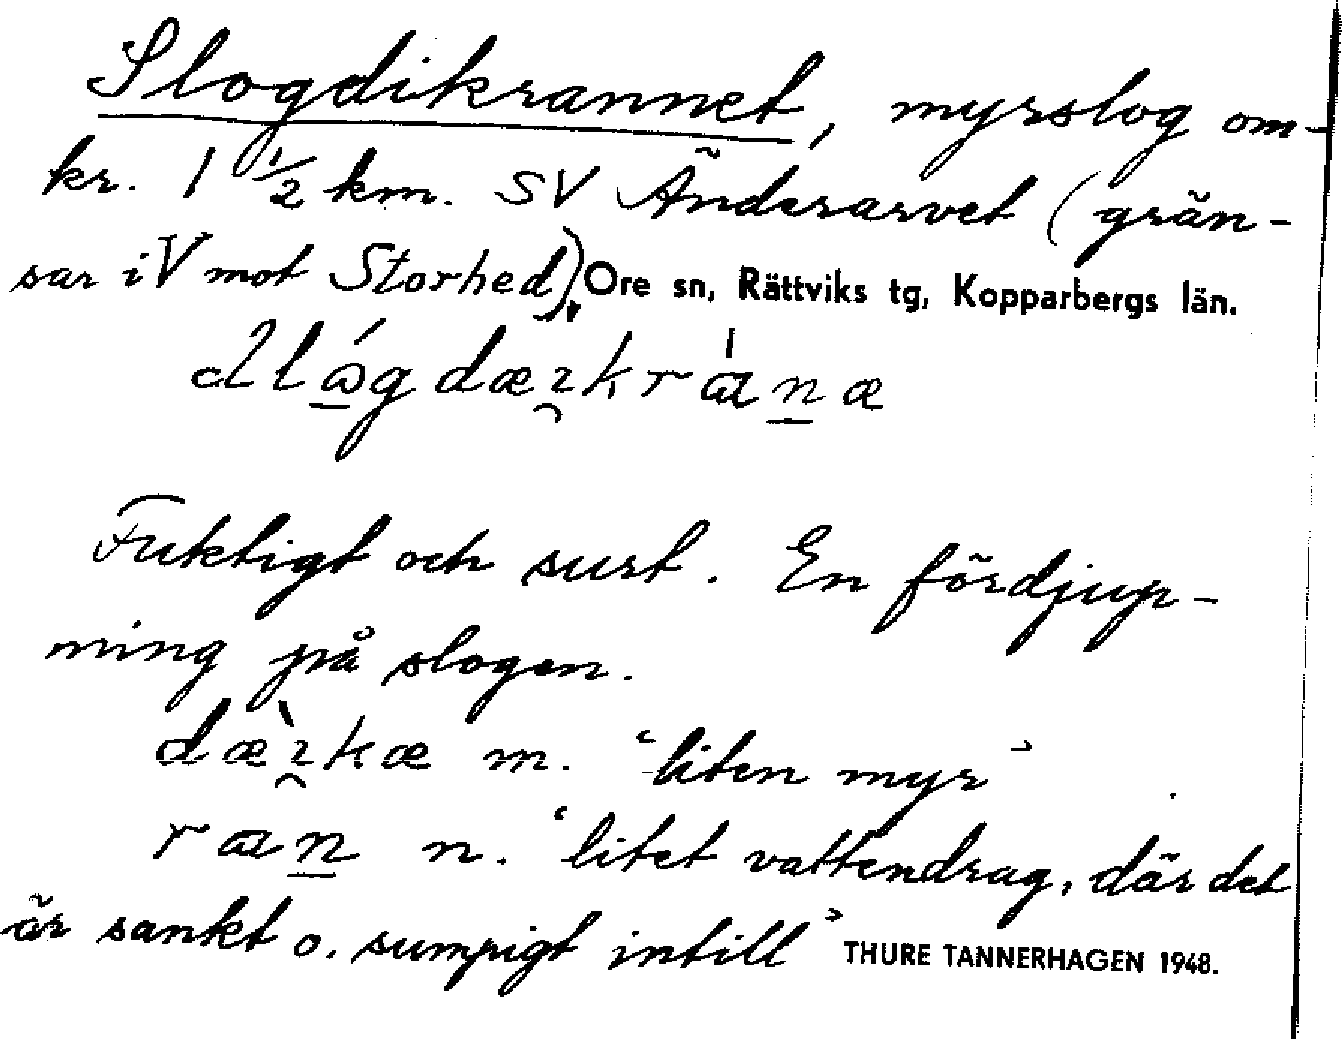 Slogdikrannet, myrslog om-
kr. 1 1/2 km. SV Änderarvet (grän-
sar i V mot Storhed), Ore sn, Rättviks tg, Kopparbergs län.
Fuktigt och surt. En fördjup-
ning på slogen.
m. ‘liten myr’
ran n. ‘litet vattendrag, där det
är sankt o. sumpigt intill’ THURE TANNERHAGEN 1948.